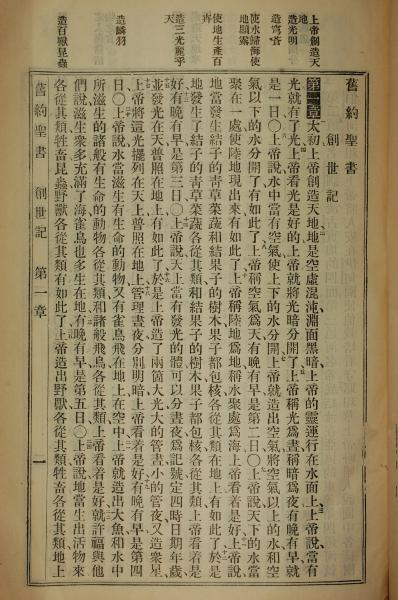 舊約聖書
創世記
第一章太初上帝創造天地地是空虛混沌淵面黑暗上帝的靈運行在水面上上帝說當有
光就有了光上帝看光是好的上帝就將光暗分開了上帝稱光爲晝稱暗爲夜有晚有早就
是一日〇上帝說水中當有空氣使上下的水分開上帝就造出空氣將空氣以上的水和空
氣以下的水分開了有如此了上帝稱空氣爲天有晚有早是第二日〇上帝說天下的水當
聚在一處使陸地現出來有如此了上帝稱陸地爲地稱水聚處爲海上帝看着是好上帝說
地當發生結子的靑草菜蔬和結果子的樹木果子都包核各從其類在地上有如此了於是
地發生了結子的靑草菜蔬各從其類和結果子的樹木果子都包核各從其類上帝看着是
好有晚有早是第三日〇上帝說天上當有發光的體可以分晝夜爲記號定四時日期年歲
並發光在天普照在地上有如此了於是上帝造了兩個大光大的管晝小的管夜又造衆星
上帝將這光擺列在天上普照在地上管理晝夜分別明暗上帝看着是好有晚有早是第四
日〇上帝說水當滋生有生命的動物又有雀鳥飛在地上在空中上帝就造出大魚和水中
所滋生的諸般有生命的動物各從其類和諸般飛鳥各從其類上帝看着是好就許福與他
們說滋生衆多充滿了海雀鳥也多生在地有晚有早是第五日〇上帝說地當生出活物來
各從其類牲畜昆蟲野獸各從其類有如此了上帝造出野獸各從其類牲畜各從其類地上
上帝創造天
地
造光明
造穹蒼
使水歸海使
地顯露
使地生產百
卉
造三光麗乎
天
造鱗羽
造百獸昆蟲
舊約聖書
創世記
第一章
一